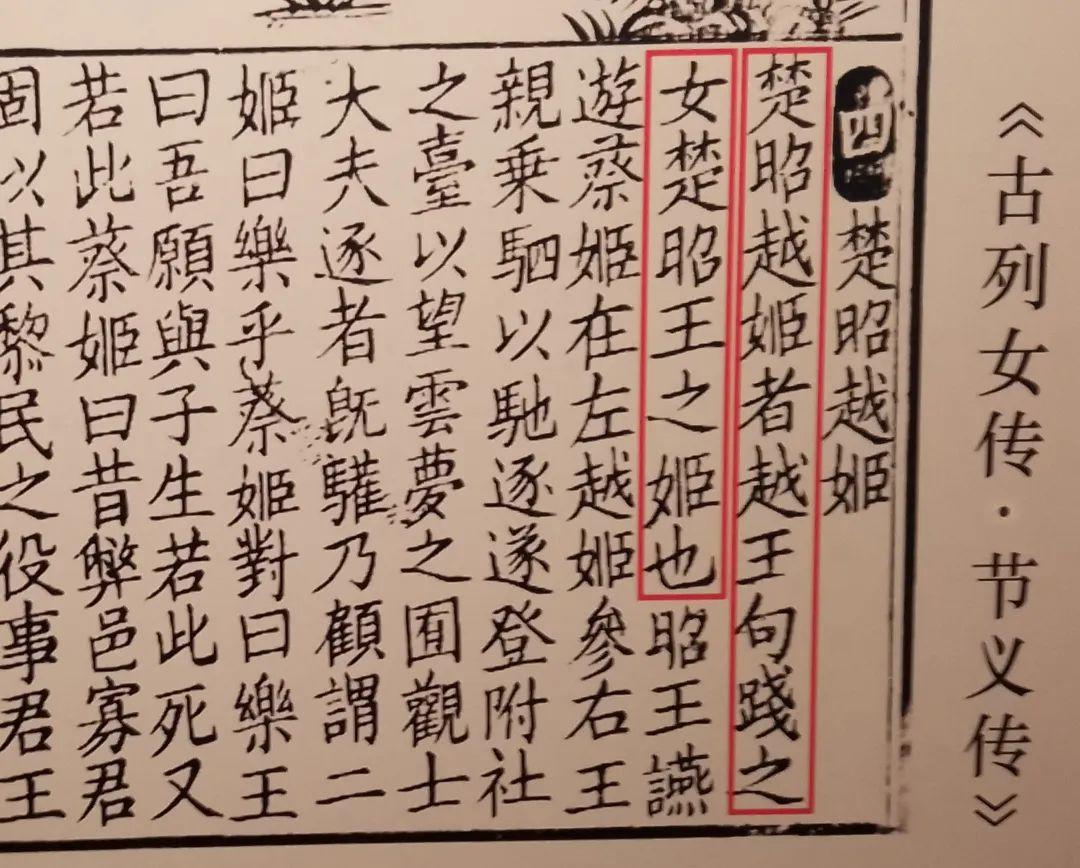 《古列女传·节义传》
四 楚昭越姬
楚昭越姬者越王句踐之
女楚昭王之姬也昭王讌
遊蔡姬在左越姬參右王
親乗駟以馳逐遂登附社
之臺以望雲夢之囿觀士
大夫逐者既驩乃顧謂二
姬曰樂乎蔡姬對曰樂王
曰吾願與子生若此死又
若此蔡姬曰昔弊邑寡君
固以其黎民之役事君王